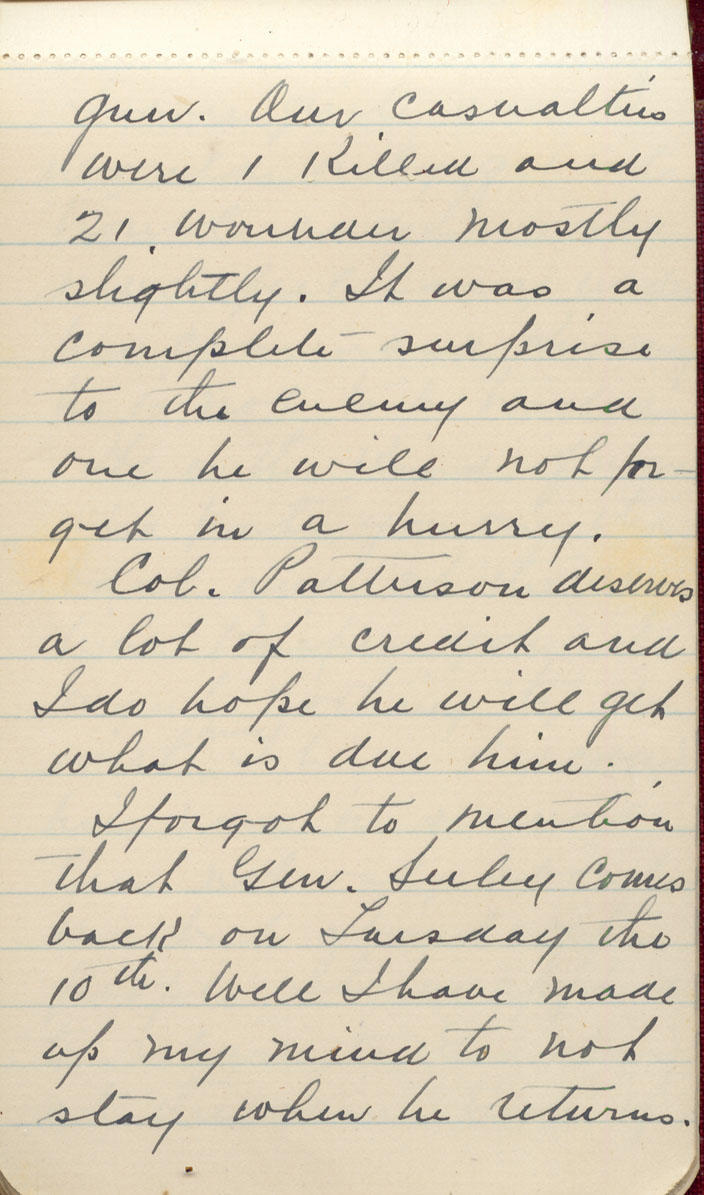 gun. Our casualties
were 1 Killed and
21 wounded mostly
slightly. It was a
complete surprise
to the enemy and
one he will not for-
get in a hurry.
Col. Patterson deserves
a lot of credit and
I do hope he will get
what is due him.
I forgot to mention
that Gen. Seeley comes
back on Tuesday the
10th. Well I have made
up my mind to not
stay when he returns.